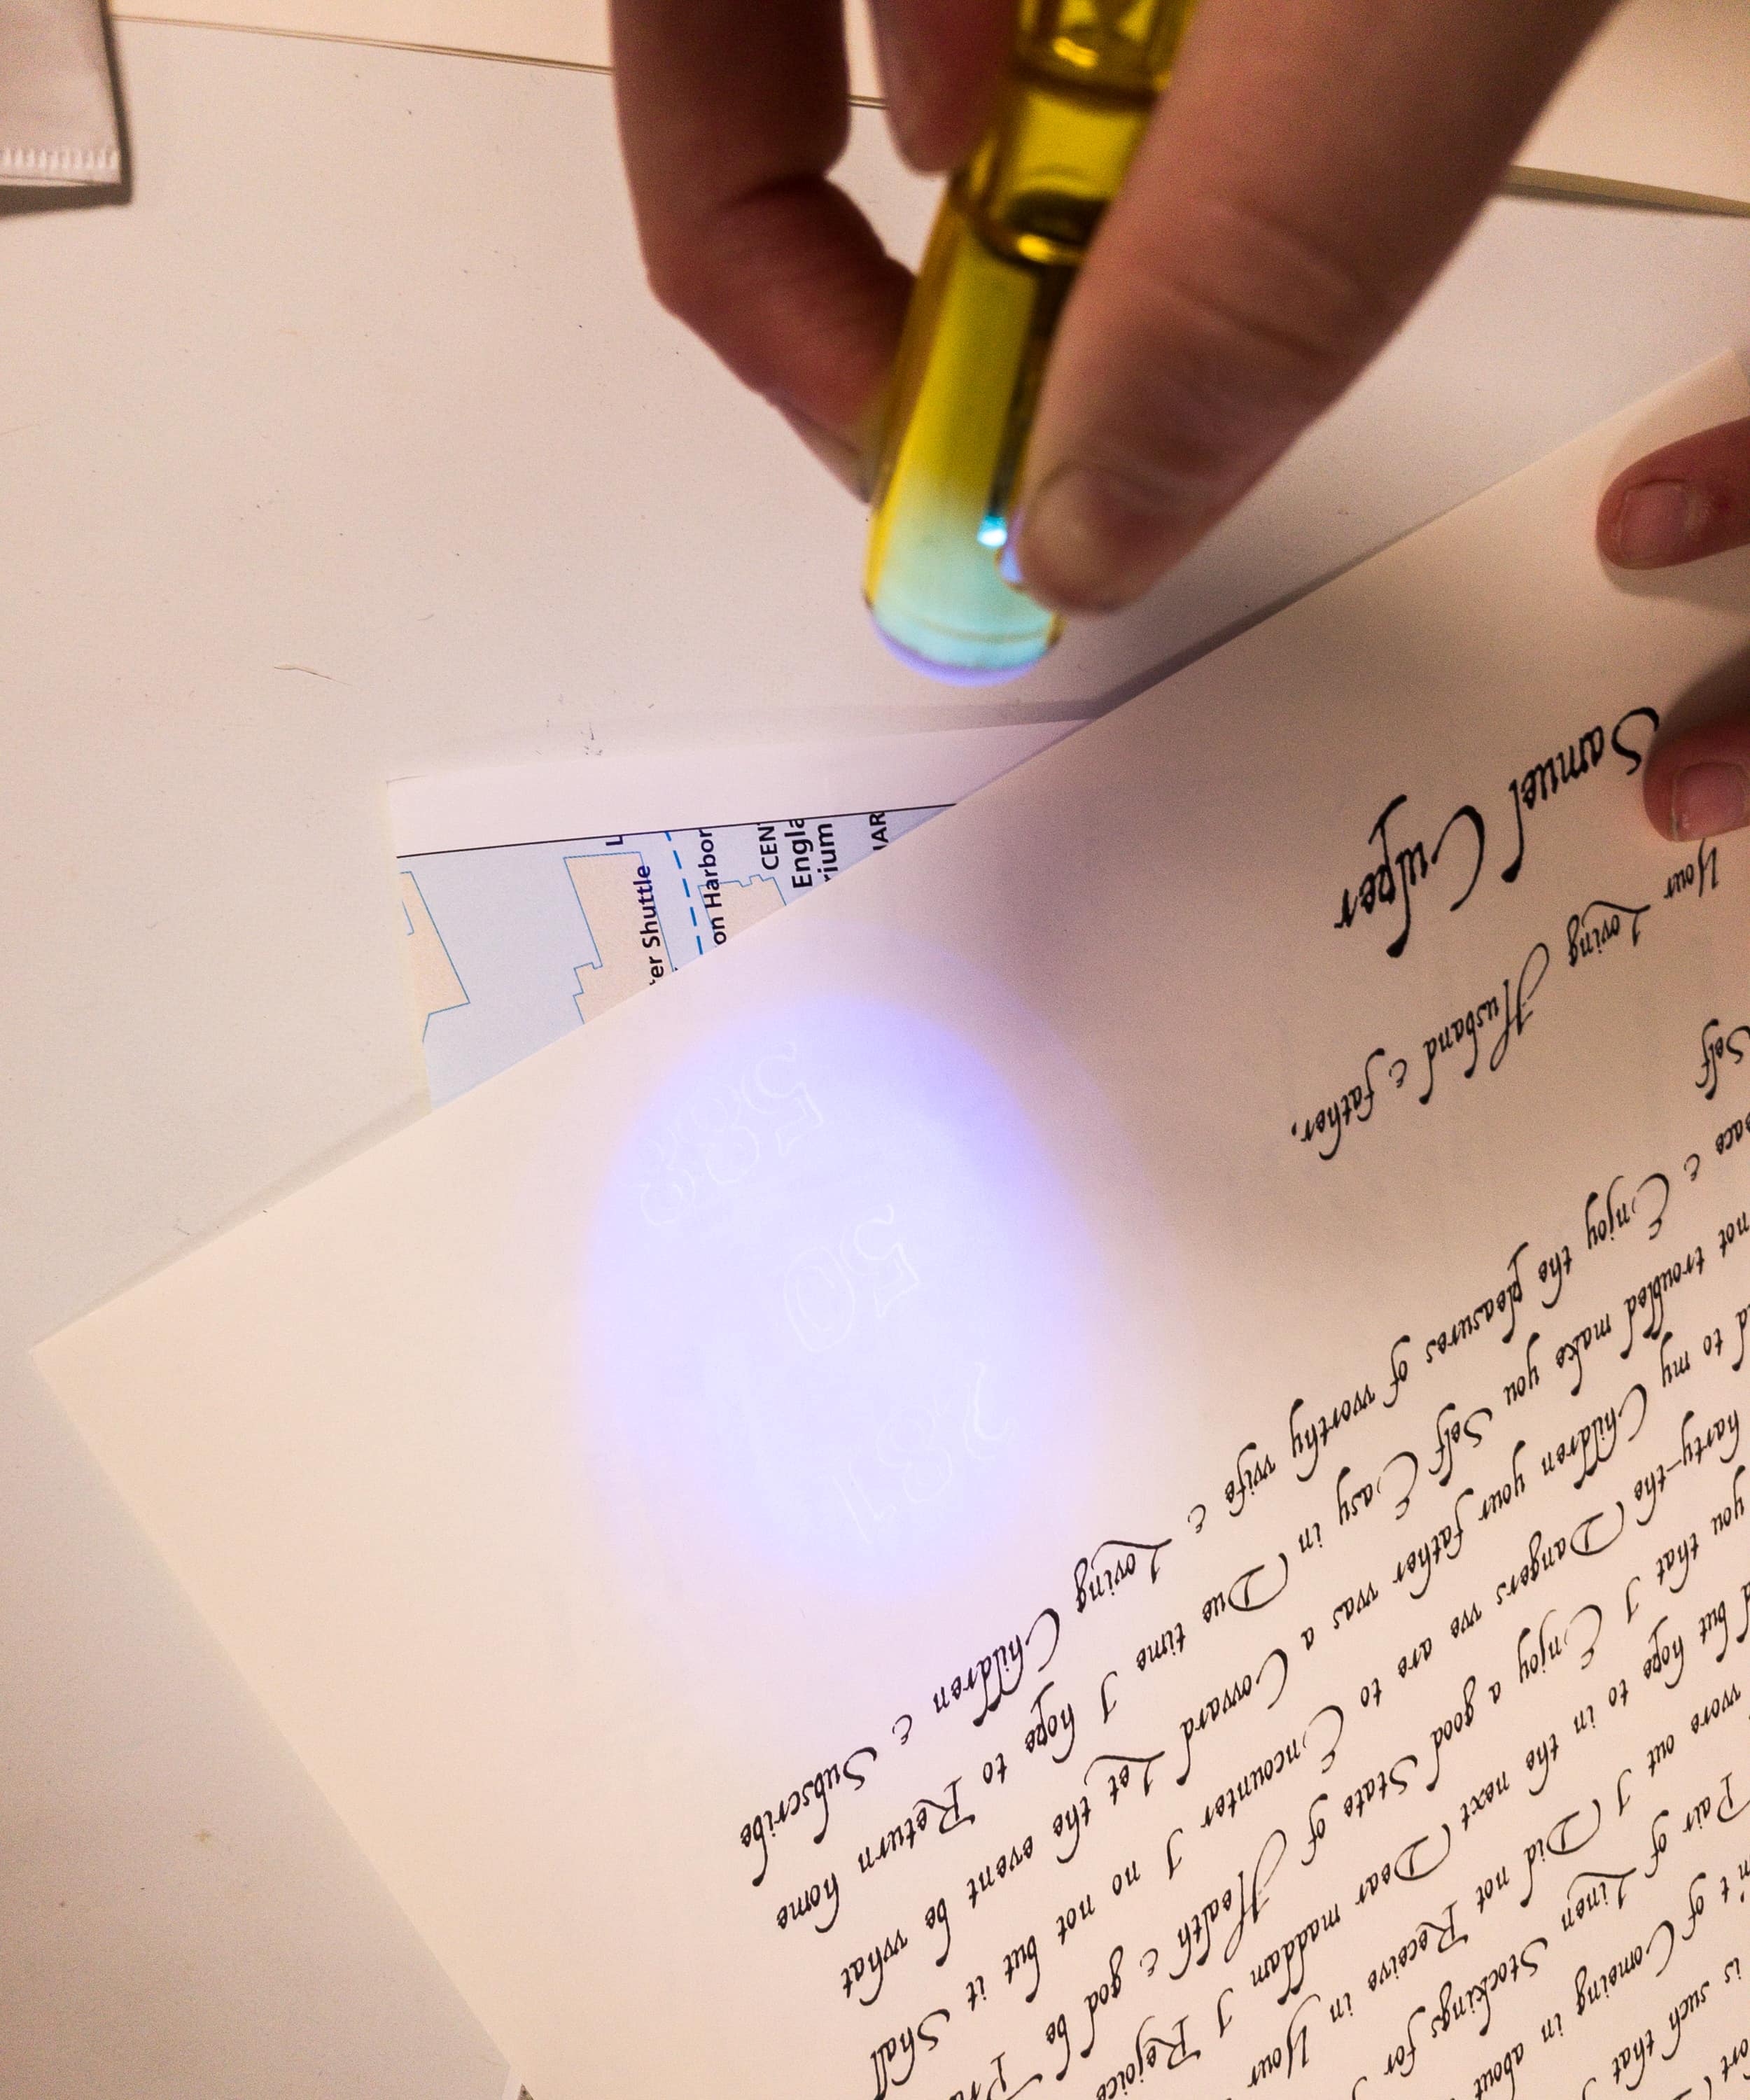 is such that
of Comeing in about
Pair of Linen Stockings for
wore out I Did not Receive in Your
but hope to in the next Dear maddam I Rejoice
you that I Enjoy a good State of Health & god be
harty-the Dangers we are to Encounter I no not but it Shall
to my Children your father was a Coward Let the event be what
not troubled make you Self Easy in Due time I hope to Return home
& Enjoy the pleasures of worthy wife & Loving Children & Subscribe
Self
Your Loving Husband & father,
Samuel Culper
281
50
588
er Shuttle
on Harbor
CEN
Engla
rium